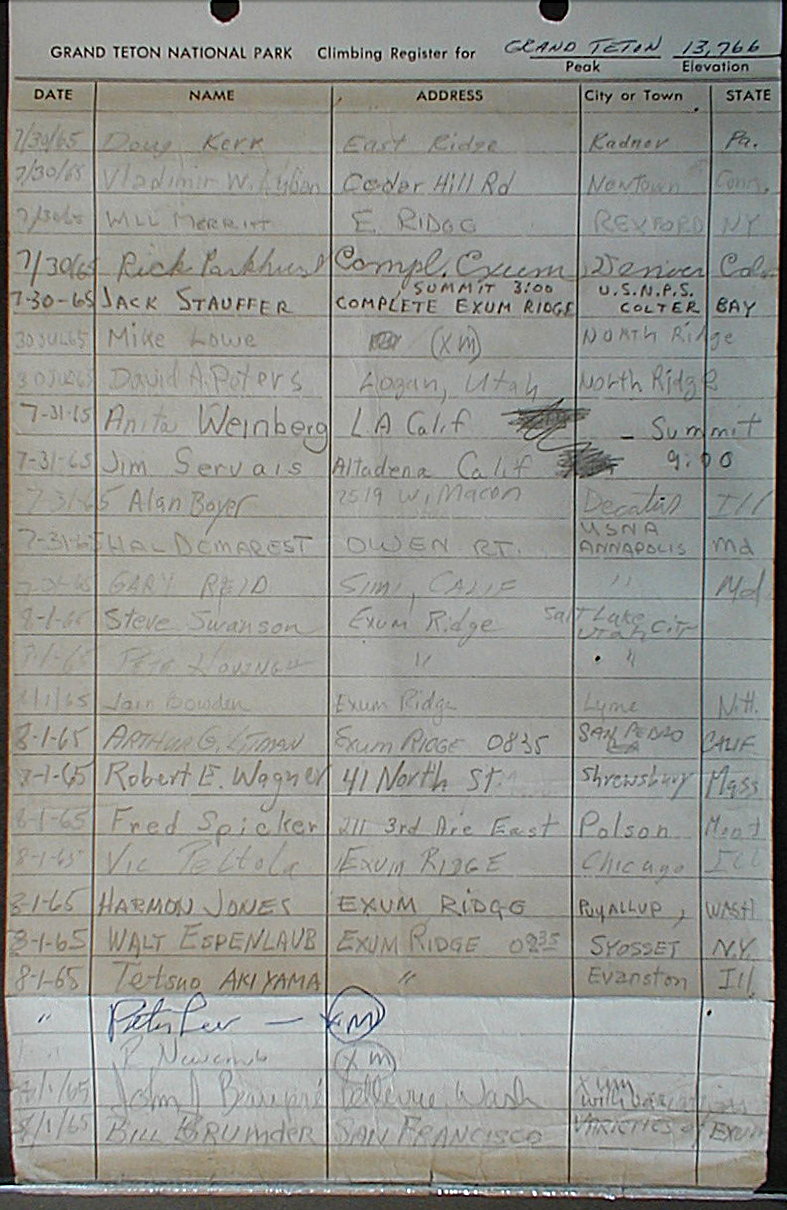 GRAND TETON NATIONAL PARK Climbing Register for GRAND TETON 13,766
Peak Elevation
DATE NAME ADDRESS City or Town STATE
7/30/65 Doug Kerr East Ridge Radnor Pa.
7/30/65 Vladimir W. Cedar Hill Rd Newtown Conn.
7/30/65 WILL MERRITT E. RIDGE REXFORD NY
7/30/65 Rick Parkhurst Compl. Exum Denver Colo.
SUMMIT 3:00 U.S.N.P.S.
7-30-65 JACK STAUFFER COMPLETE EXUM RIDGE COLTER BAY
30 JUL 65 Mike Lowe (XM) NORTH Ridge
30 JUL 65 David A. Peters Logan, Utah North Ridge
7-31-65 Anita Weinberg LA Calif - Summit
7-31-65 Jim Servais Altadena Calif 9:00
7-31-65 Alan Boyer 2519 W. Macon Decatur Ill
USNA
7-31-65 HAL DEMAREST OWEN RT. ANNAPOLIS Md
GARY REID SIMI, CALIF " Md
8-1-65 Steve Swanson Exum Ridge Salt Lake City
Utah
8-1-65 Pete " "
8/1/65 Iain Bowden Exum Ridge Lyme N.H.
8-1-65 ARTHUR G. LITMAN EXUM RIDGE 0835 SAN PEDRO CALIF
LA
8-1-65 Robert E. Wagner 41 North St. Shrewsbury Mass
8-1-65 Fred Spicker 211 3rd Ave East Polson Mont
8-1-65 Vic Peltola EXUM RIDGE Chicago Ill
8-1-65 HARMON JONES EXUM RIDGE PUYALLUP, WASH
8-1-65 WALT ESPENLAUB EXUM RIDGE 0835 SYOSSET N.Y.
8-1-65 Tetsuo AKIYAMA " Evanston Ill.
" Peter Lev — XM
" " R Newcomb (XM)
8/1/65 John J Bellevue Wash Xum
with variations
8/1/65 BILL BRUMDER SAN FRANCISCO VARIETIES of EXUM